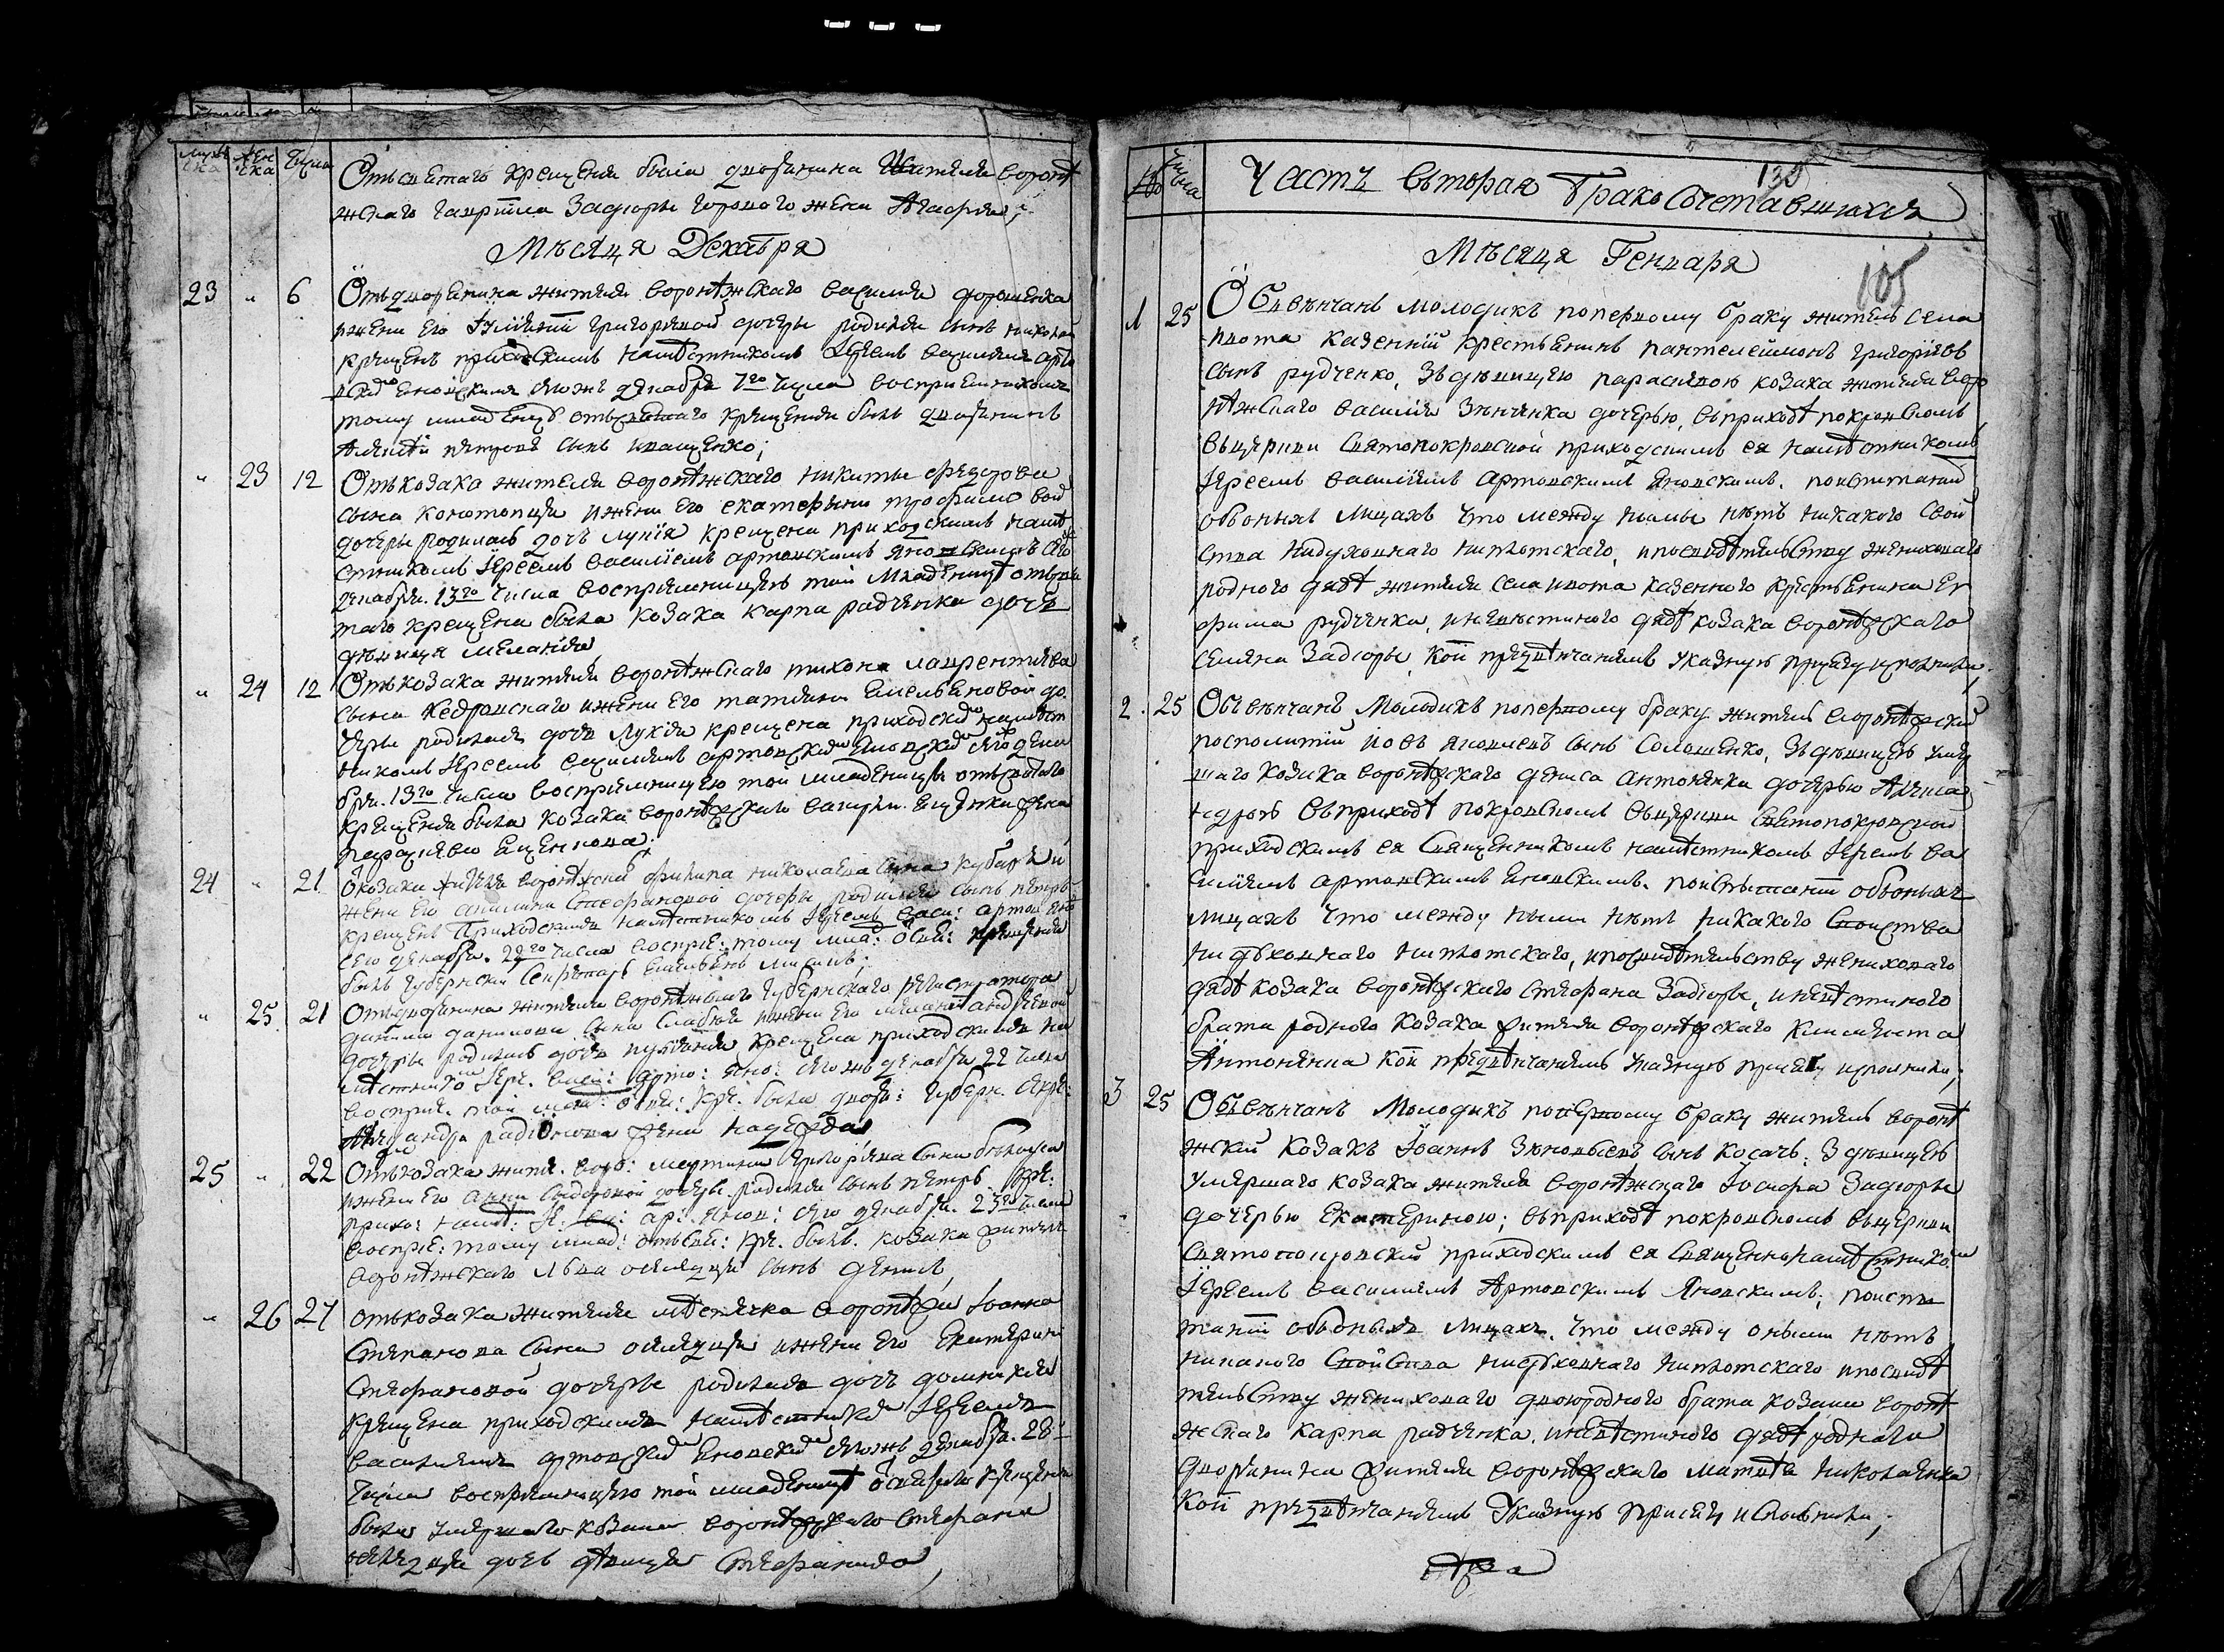 Мужеска Женска Числа
Отъ святаго крещения была дворянина жителя воронѣ
жскаго Гавриила Задюры Горового жена Агафия;
Мѣсяца Декабря
23 „ 6 Отъ дворянина жителя воронѣжскаго Василия Дорошенка
и жены его Григориевой дочеры родился сынъ Николай
крещенъ приходскимъ намѣстникомъ Іереемъ Василиемъ Арто
вскимъ Яновскимъ того жъ декабря 7го числа восприемникомъ
тому младенцу отъ святаго крещения былъ дворянинъ
Алексѣй Петровъ сынъ Иващенко;
„ 23 12 Отъ козака жителя воронѣжскаго Никиты Федорова
сына Конотопца и жены его Екатерыны Трофимовой
дочеры родилась дочъ Лукія крещена приходскимъ намѣ
стникомъ Іереемъ Василіемъ Артовскимъ Яновскимъ сего
декабря 13го числа восприемницею той младеницѣ отъ свя
таго крещения была козака Карпа Радченка дочь
дѣвица Меланія
„ 24 12 Отъ козака жителя воронѣжскаго Тихона Лаврентиева
сына Кедровскаго и жены его Татияны Емельяновой до
черы родилась дочъ Лукія крещена приходскимъ намѣст
никомъ Іереемъ Василиемъ Артовскимъ Яновскимъ сего дека
бря 13го числа восприемницею той младеницы отъ святаго
крещения была козака воронѣжскаго жена
24 „ 21 О козака жителя воронѣжскаго Филипа Николаева сына
жены его Стефановой дочеры родился сынъ Петръ
крещенъ приходскимъ намѣстникомъ Іереемъ Васи: Артов: Яно
сего декабря 22го числа воспрiе: тому млад: о свя: крещения
былъ губернски секретарь
„ 25 21 Отъ дворянина жителя воронѣжскаго губернскаго регистратора
Данила Данилова сына и жены его
дочеры родилась дочъ крещена приходскимъ на
мѣстнико Іере. Васи: Арто: Яно: того жъ декабря 22 числа
восприе. той млад: о свя: кре. была дворя: губерн. секре:
Александра Радіонова жена Надежда
25 „ 22 Отъ козака жите. воро: Мартина Григориева сына
и жены его Анны Сидоровой дочеры родился сынъ Петръ. кре:
прихо: намѣ: Іе. Ва: Ар: Янов: сего декабря 23го числа
воспріе: тому млад: отъ свя: кре. былъ козака жителя
воронѣжскаго Лва сынъ
„ 26 27 Отъ козака жителя мѣстечка воронѣжа Іоанна
Степанова сына и жены его Екатерины
Стефановой дочеры родилася дочъ Домникия
крещена приходскимъ намѣстникомъ Іереемъ
Василиемъ Артовскимъ Яновскимъ того жъ декабря 28
числа восприемницею той младеницѣ о святаго крещения
была умершаго козака воронѣжскаго Стефана
дочь дѣвица Стефанида
№ Числа Часть вторая Бракосочетавшихся
130
105
Мѣсяца Генваря
1 25 Обвѣнчанъ молодикъ поперьвому браку житель села
Ивота казенній крестьянинъ Пантелеймонъ Григоріевъ
сынъ Рудченко, зъ дѣвицею Параскевою козака жителя воро
нѣжскаго Василія Зѣнченка дочерью, въ приходѣ покровскомъ
въ церкви святопокровской приходскимъ ея намѣстникомъ
Іереемъ Василіемъ Артовскимъ Яновскимъ. по испитаний
обоонихъ лицахъ что между ними нѣтъ никакого свой
ства ни духовнаго ни плотскаго, и по свидѣтельству женихового
родного дядѣ жителя села Ивота казенного крестьянина Ев
фима Рудченка, и невѣстиного дядѣ козака воронѣжскаго
Семена Задюры, кои предъ вѣнчаниемъ указную присягу исполнили;
2. 25 Объвѣнчанъ молодикъ поперьвому браку житель воронѣжский
посполитій Іовъ Яковлевъ сынъ Соломенко, зъ дѣвицею умер
шаго козака воронѣжскаго Дениса Антоненка дочерью Алекса
ндрою въ приходѣ покровскомъ въ церкви святопокровской
приходскимъ ея священникомъ намѣстникомъ Іереемъ Ва
силіемъ Артовскимъ Яновскимъ. по испытаніи обоонихъ
лицахъ что между ними нѣтъ никакого своиства
ни духовнаго ни плотскаго, и по свидѣтельству женихового
дядѣ козака воронѣжскаго Стефана Задюры, и невѣстиного
брата родного козака жителя воронѣжскаго Климента
Антоненка кои предъ вѣнчаниемъ указную присягу исполнили;
3 25 Обвѣнчанъ молодикъ поперьвому браку житель воронѣ
жский козакъ Іоаннъ Зѣновьевъ сынъ Косачъ. з дѣвицею
умершаго козака жителя воронѣжскаго Іосифа Задюры
дочерью Екатериною; въ приходѣ покровскомъ въ церкви
святопокровский приходскимъ ея священно намѣстникомъ
Іереемъ Василиемъ Артовскимъ Яновскимъ; по испы
таніи обоонихъ лицахъ. что между оными нѣтъ
никакого свойства ни духовнаго ни плотскаго и по свидѣ
тельству женихового двоюродного брата козака воронѣ
жскаго Карпа Радченка. и невѣстиного дядѣ родного
дворянина жителя воронѣжскаго Матвѣя Николаенка
кои предъ вѣнчаниемъ указную присягу исполнили;